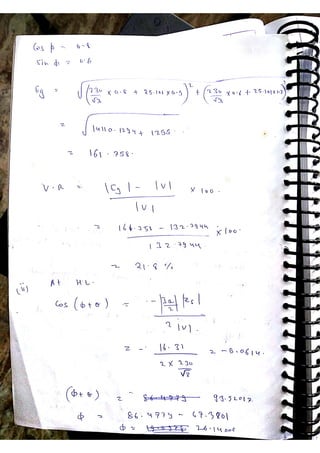 Cos φ = 0.8
Sin φ = 0.6
Eg = √((230/√3 × 0.8 + 25.101 × 0.5)² + (230/√3 × 0.6 + 25.101
= √(14110.1234 + 1255
= 161.758.
V.R = |Eg| - |V| / |V| × 100.
= 161.758 - 132.7944 / 132.7944 × 100.
= 21.8 %
(ii) At HL.
Cos (φ+θ) = -|Ia/2| |Zs| / 2 |V|.
= - 16.31 / 2 × 230/√3 = -0.0614.
(φ+θ) = 93.52017
φ = 86.4779 - 67.3801
φ = 26.1400